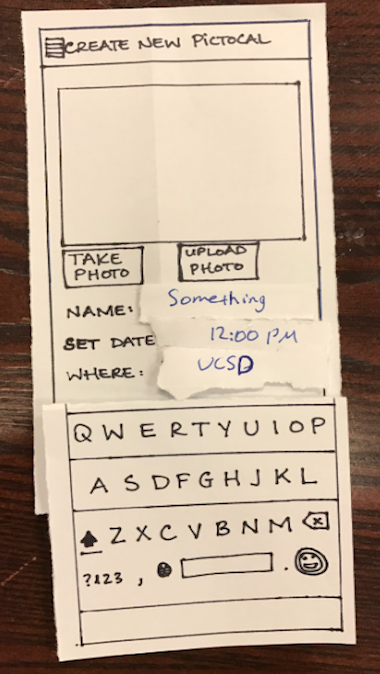 CREATE NEW PICTOCAL
TAKE PHOTO
UPLOAD PHOTO
NAME: Something
SET DATE 12:00 PM
WHERE: UCSD
Q W E R T Y U I O P
A S D F G H J K L
Z X C V B N M
?123 , .